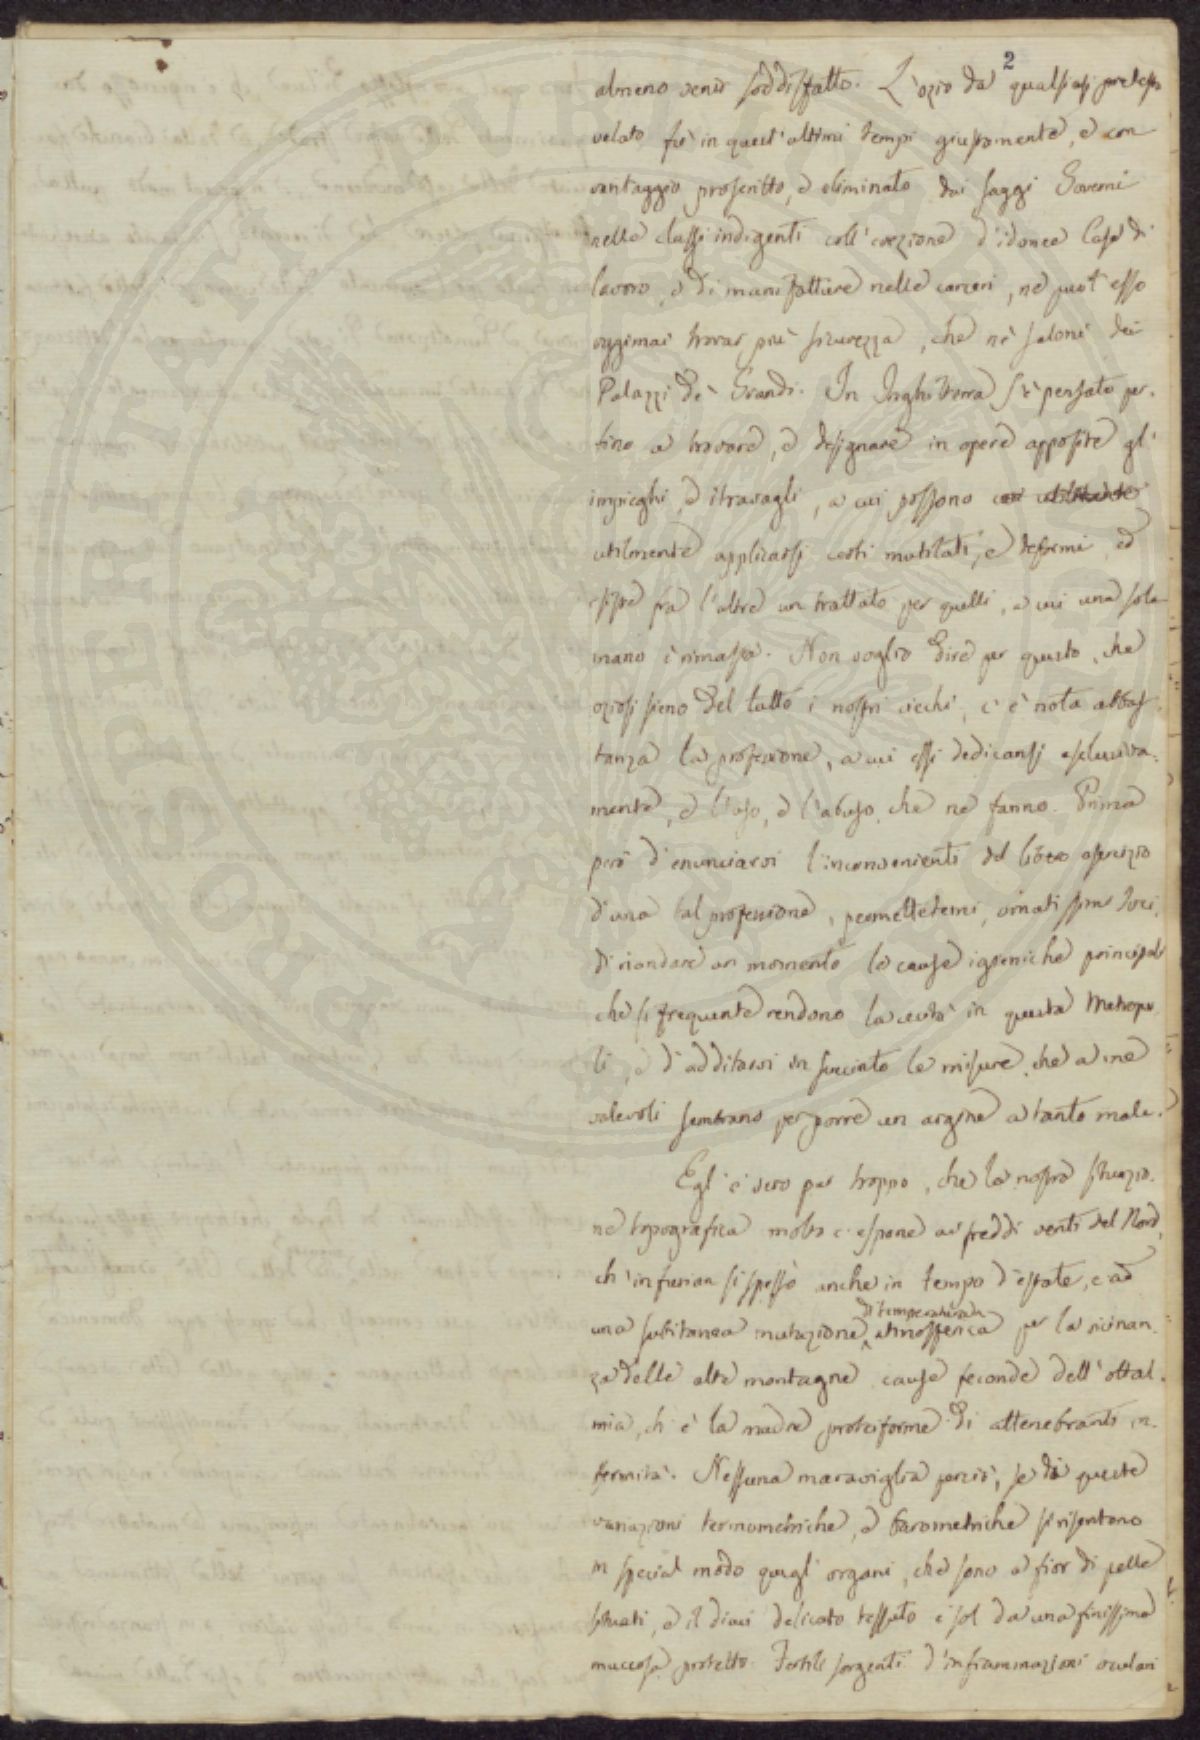 2
almeno venir soddisfatto. L'ozio da qualsiasi pretesto
velato fu in quest'ultimi tempi giustamente, e con
vantaggio proscritto, e eliminato dai saggi Governi
nelle classi indigenti coll'erezione d'idonee Case di
lavoro, e di manifatture nelle carceri, nè puot esso
oggimai trovar più sicurezza, che ne' saloni dei
Palazzi de' Grandi. In Inghilterra s'è pensato per-
fino a trovare, e designare in opere apposite gl'
impieghi, e i travagli, a cui possono
utilmente applicarsi certi mutilati, e deformi, ed
esiste fra l'altre un trattato per quelli, a cui una sola
mano è rimasta. Non voglio dire per questo, che
oziosi sieno del tutto i nostri ciechi, c'è nota abbas-
tanza la professione, a cui essi dedicansi esclusiva-
mente, e l'uso, e l'abuso, che ne fanno. Prima
però d'enunciarvi l'inconvenienti del libero esercizio
d'una tal professione, permettetemi, ornatissimi Soci,
di riandare un momento le cause igieniche principali
che sì frequente rendono la cecità in questa Metropo-
li, e d'additarvi in succinto le misure, che a me
valevoli sembrano per porre un argine a tanto male.
Egl'è vero pur troppo, che la nostra situazio-
ne topografica molto c'espone ai freddi venti del Nord,
ch'infurian sì spesso anche in tempo d'estate, e ad
una subitanea mutazione di temperatura atmosferica per la vicinan-
za delle alte montagne cause feconde dell'ottal-
mia, ch'è la madre proteiforme di attenebranti in-
fermità. Nessuna maraviglia perciò, se di queste
variazioni termometriche, e barometriche si risentono
in special modo quegl'organi, che sono a fior di pelle
situati, e il di cui delicato tessuto è sol da una finissima
muccosa protetto. Fertili sorgenti d'infiammazioni oculari